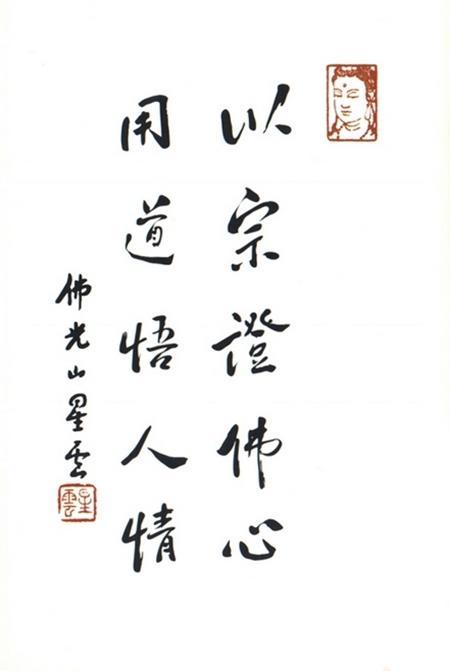 以宗證佛心
用道悟人情
佛光山星雲
星雲